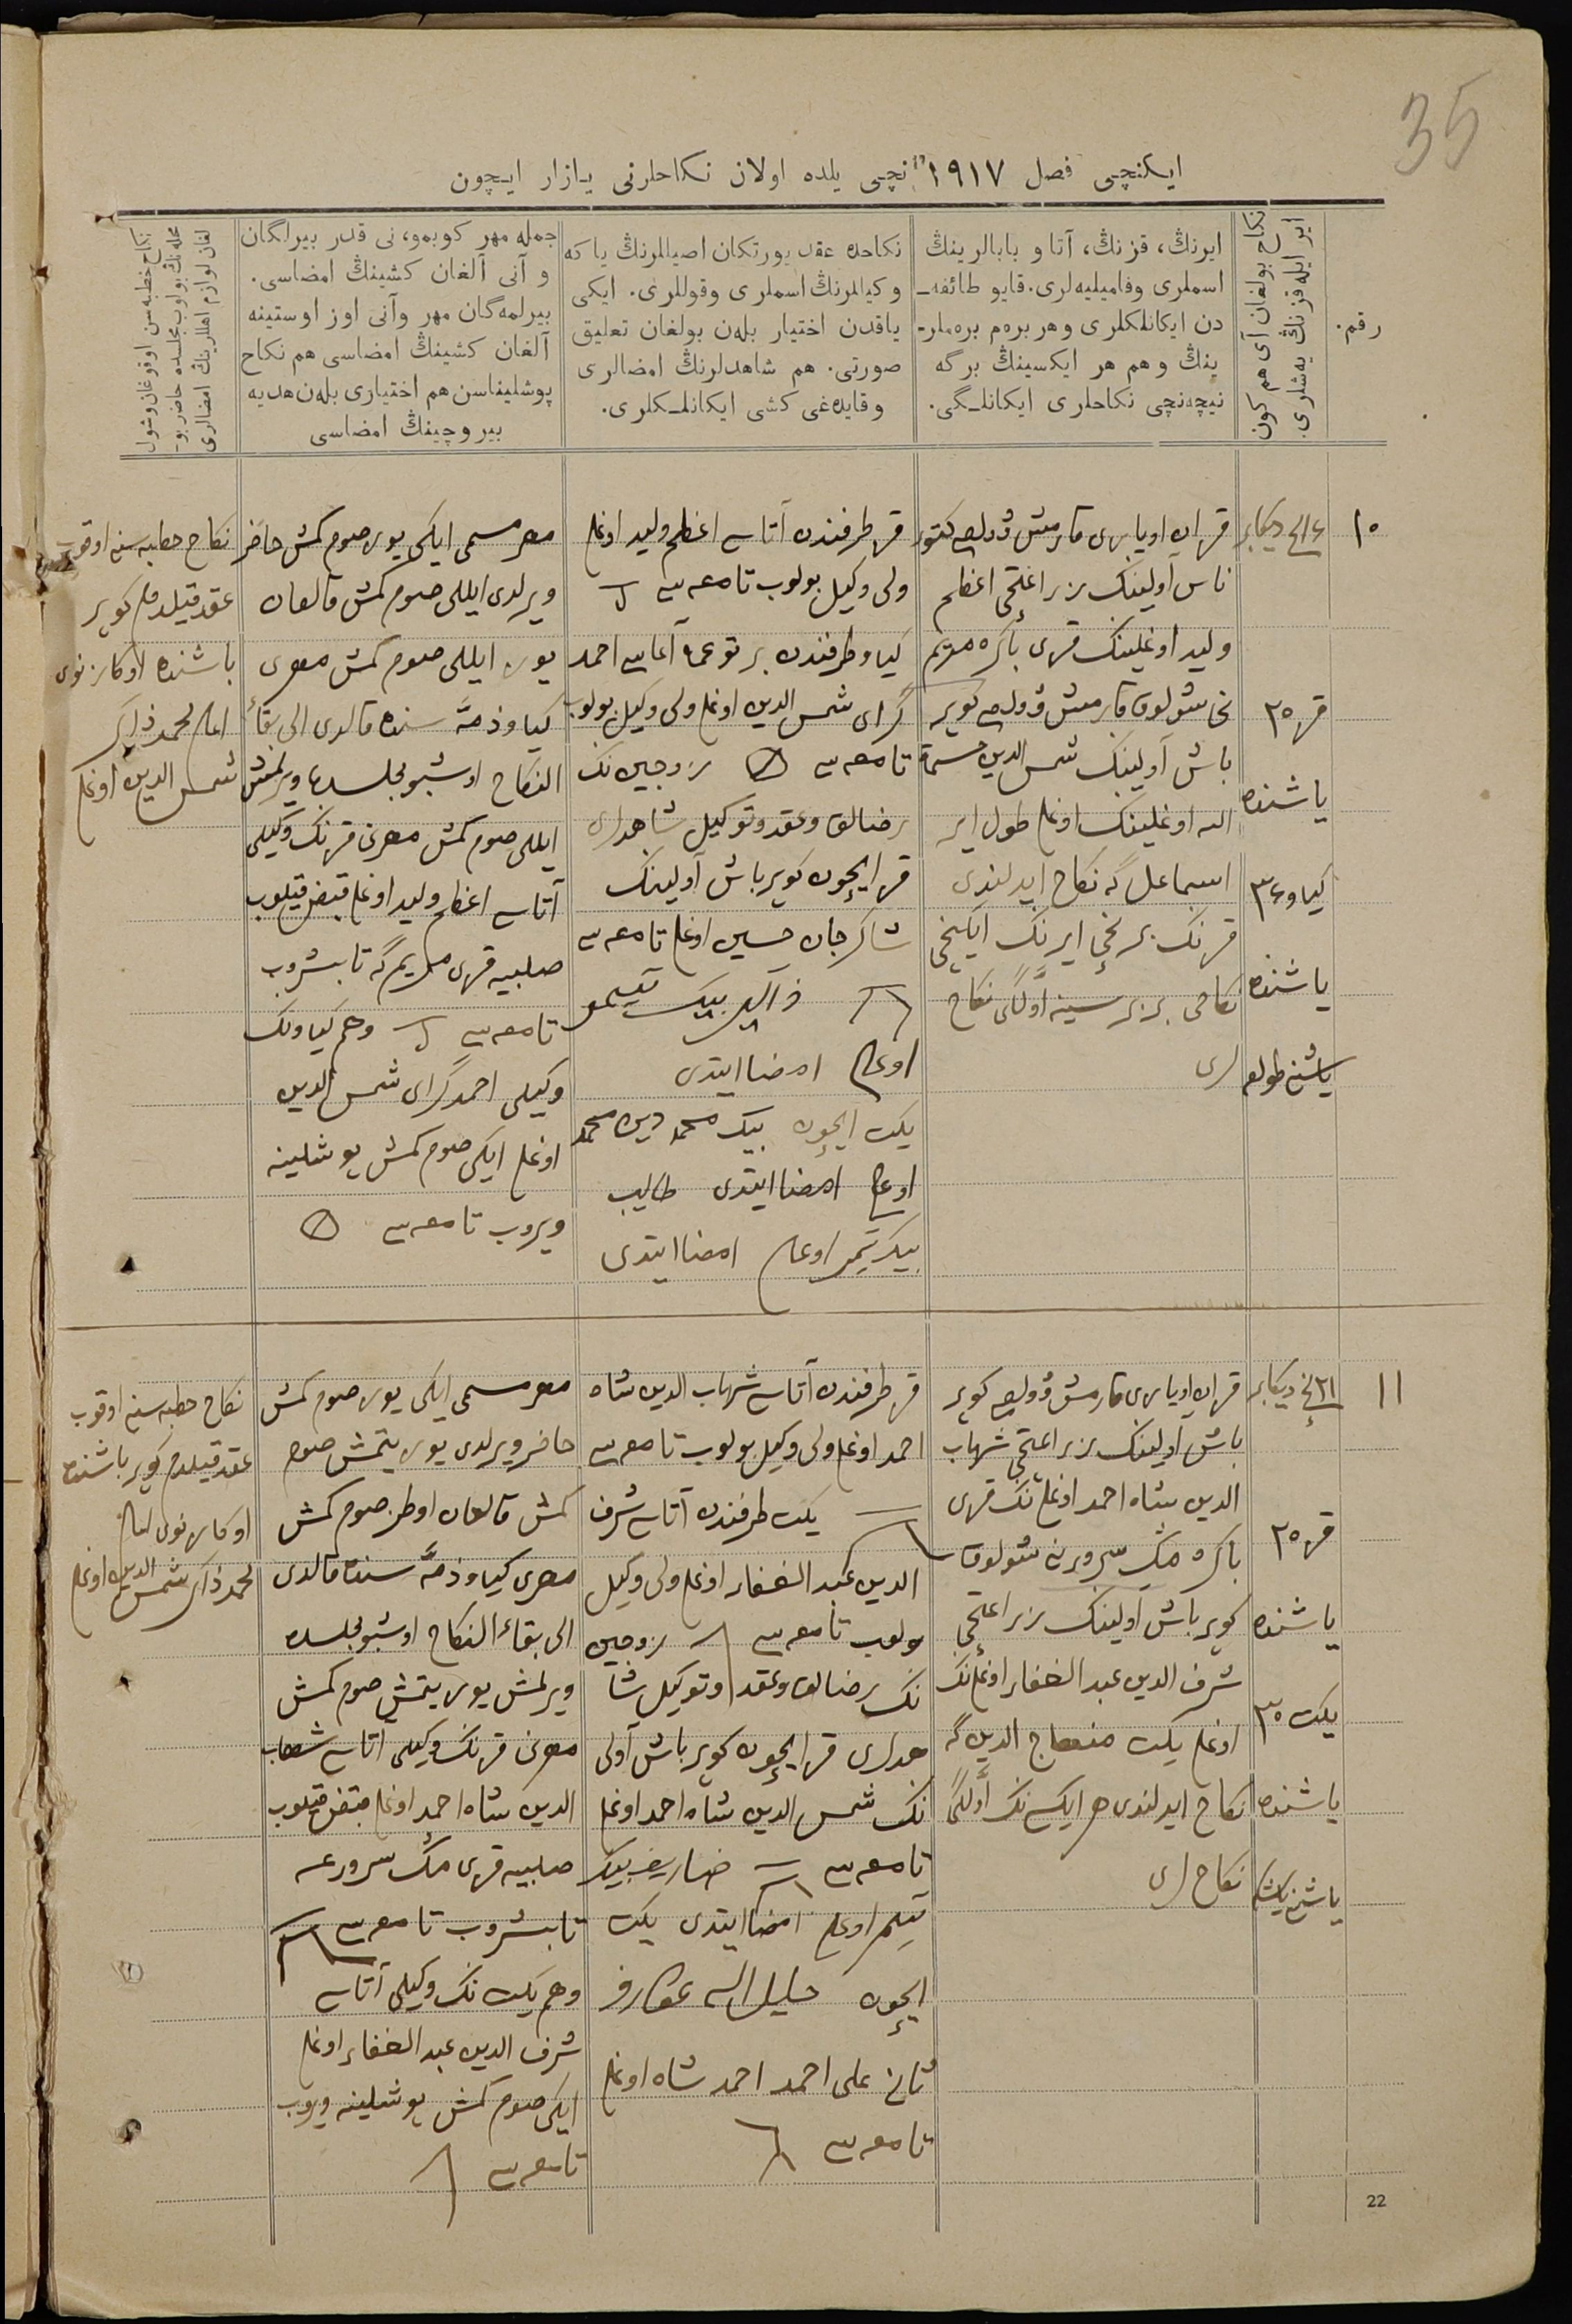 35
ایکنچی فصل ۱۹۱۷ نچی یلده اولان نکاحلرنی یازار ایچون
رقم.
ایر ایله قزنڭ یه‌شلری.
نکاح بولغان آی هم کون
ایرنڭ، قزنڭ، آتا و بابالرینڭ
اسملری وفامیلیه‌لری. قایو طائفه‌ـ
دن ایکانلکلری و هر بره‌م بره‌ملرـ
ینڭ و هم هر ایکسینڭ برگه
نیچه‌نچی نکاحلری ایکانلـگی.
نکاحده عقد یورتکان اصیللرنڭ یا که
و کیللرنڭ اسملری وقوللری. ایکی
یاقدن اختیار بله‌ن بولغان تعلیق
صورتی. هم شاهدلرنڭ امضالری
و قایده‌غی کشی ایکانلـکلری.
جمله مهر کوبمو، نی قدر بیرلگان
و آنی آلغان کشینڭ امضاسی.
بیرلمه‌گان مهر وآنی اوز اوستینه
آلغان کشینڭ امضاسی هم نکاح
پوشلیناسن هم اختیاری بله‌ن هدیه
بیروچینڭ امضاسی
نکاح خطبه‌سن اوقوغان وشول
محله‌نڭ بولوب مجلسده حاضر بوـ
لغان لوازم اهللرینڭ امضالری
۱۰
دیکابر
قز ۲۵
یاشنده
کیاو ۳۶
یاشنده
یاشنه طولعـ
ناس اولینک بزر اغتچی اغظم
ولید اوغلینک قزی باکره مریم
باش آولینک شمس الدین
الله اوغلینک اوغلی طول ایر
اسماعیل گه نکاح ایدلندی
قزنک برنچی ایرنک ایکنچی
نکاحی بربرسینه اولگی نکاح
لری
قز طرفندن آتاسی اغظم ولید اوغلی
ولی وکیل بولوب تامعه‌سی
کیاو طرفندن بر توغما آغاسی احمد
گرای شمس الدین اوغلی ولی وکیل بولوب
تامعه‌سی زوجین نک
رضالق وعقد وتوکیل شاهدلری
قز ایچون کوپرباش آولینک
شاکرجان حسین اوغلی تامعه‌سی
اوغلی امضا ایتدی
یکت ایچون بیک محمد دین محمد
اوغلی امضا ایتدی طالب
بیکتیمر اوغلی امضا ایتدی
مهر مسمی ایکی یوز صوم کمش حاضر
ویرلدی ایللی صوم کمش قالغان
یوز ایللی صوم کمش مهری
کیاو ذمه سنده قالدی الی بقاء
النکاح اوشبو مجلسده ویرلمش
ایللی صوم کمش مهرنی قزنک وکیلی
آتاسی اغظم ولید اوغلی قبض قیلوب
صلبیه قزی مریم گه تابشروب
تامعه‌سی وهم کیاونک
وکیلی احمد گرای شمس الدین
اوغلی ایکی صوم کمش پوشلینه
ویروب تامعه‌سی
نکاح خطبه‌سنی اوقوب
عقد قیلدم کوپر
باشنده اوکازنوی
امام محمد ذاکر
شمس الدین اوغلی
۱۱
۲۱ نچی دیکابر
قز ۲۵
یاشنده
یکت ۳۰
یاشنده
باش اولینک بزر اغتچی شهاب
الدین شاه احمد اوغلی نک قزی
کوپرباش اولینک بزر اغتچی
شرف الدین عبد الغفار اوغلی نک
اوغلی یکت منهاج الدین گه
نکاح ایدلندی هر ایکسی نک اولگی
نکاح لری
قز طرفندن آتاسی شهاب الدین شاه
احمد اوغلی ولی وکیل بولوب تامعه‌سی
یکت طرفندن آتاسی شرف
الدین عبد الغفار اوغلی ولی وکیل
بولوب تامعه‌سی زوجین
نک رضالق وعقد وتوکیل شا
هدلری قز ایچون کوپرباش آولی
نک شمس الدین شاه احمد اوغلی
تامعه‌سی
اوغلی امضا ایتدی یکت
ایچون خلیل الله
ثانی علی احمد احمد شاه اوغلی
تامعه‌سی
مهر مسمی ایکی یوز صوم کمش
حاضر ویرلدی یوز یتمش صوم
کمش قالغان اوطز صوم کمش
مهری کیاو ذمه سنده قالدی
الی بقاء النکاح اوشبو مجلسده
ویرلمش یوز یتمش صوم کمش
مهرنی قزنک وکیلی آتاسی شهاب
الدین شاه احمد اوغلی قبض قیلوب
تابشروب تامعه‌سی
وهم یکت نک وکیلی آتاسی
شرف الدین عبد الغفار اوغلی
ایکی صوم کمش پوشلینه ویروب
تامعه‌سی
نکاح خطبه‌سنی اوقوب
عقد قیلدم کوپر باشنده
اوکازنوی امام
محمد ذاکر شمس الدین اوغلی
22